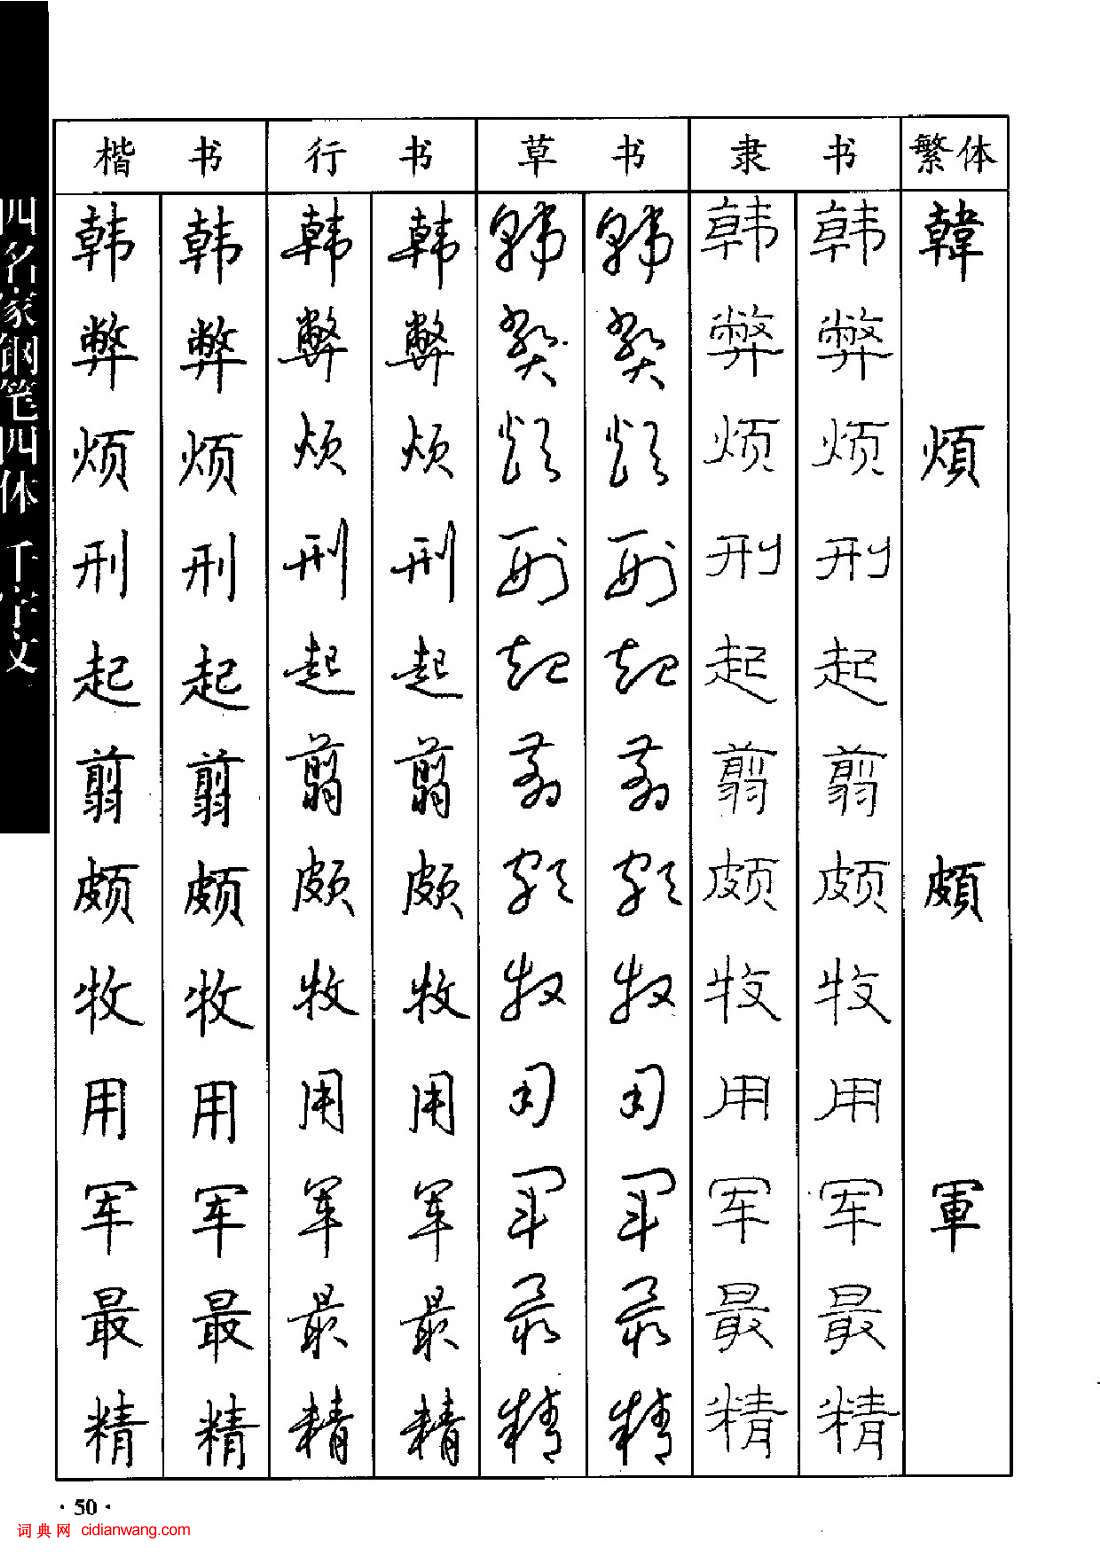 四名家钢笔四体 千字文
楷书 行书 草书 隶书 繁体
韩 韩 韩 韩 韩 韩 韩 韩 韓
弊 弊 弊 弊 弊 弊 弊 弊
烦 烦 烦 烦 烦 烦 烦 烦 煩
刑 刑 刑 刑 刑 刑 刑 刑
起 起 起 起 起 起 起 起
翦 翦 翦 翦 翦 翦 翦 翦
颇 颇 颇 颇 颇 颇 颇 颇 頗
牧 牧 牧 牧 牧 牧 牧 牧
用 用 用 用 用 用 用 用
军 军 军 军 军 军 军 军 軍
最 最 最 最 最 最 最 最
精 精 精 精 精 精 精 精
·50·
词典网 cidianwang.com